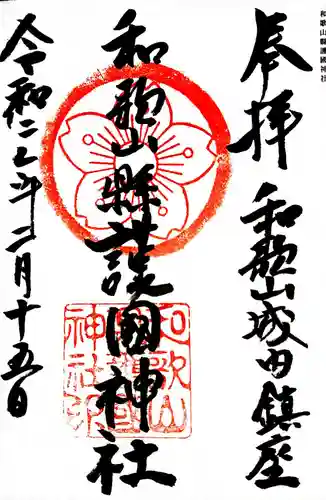 和歌山縣護國神社
奉拝
和歌山城内鎮座
和歌山縣護國神社
和歌山
縣護國
神社印
令和二年二月十五日